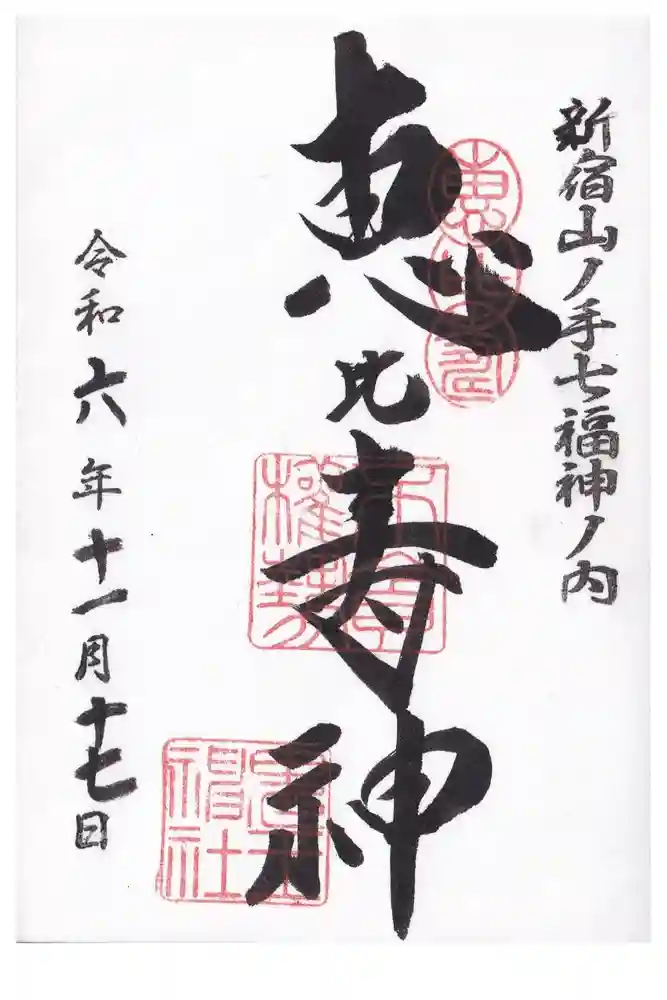 新宿山ノ手七福神ノ内
恵比寿神
恵比寿
令和六年十一月十七日